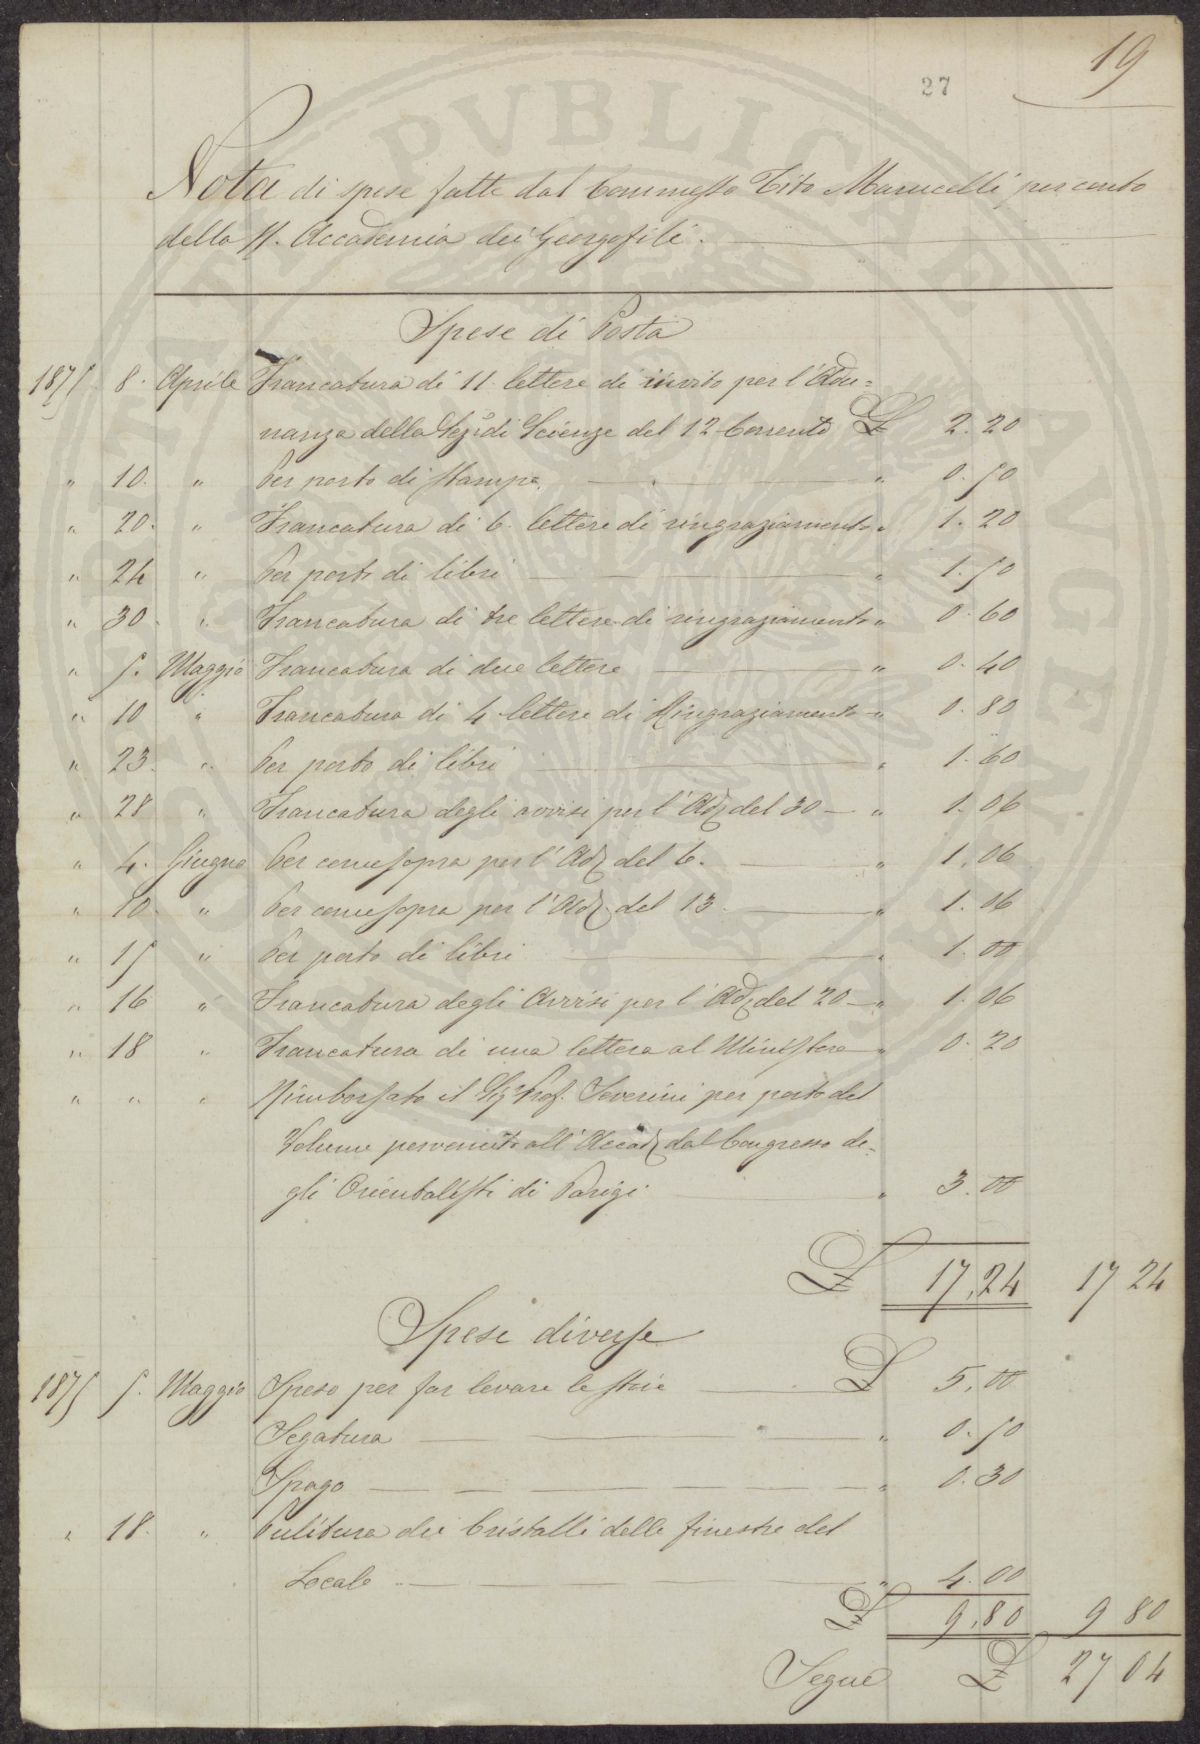 19
27
PVBLICAE AVGENDAE
Nota di spese fatte dal Commesso Tito Marucelli per conto
della R. Accademia dei Georgofili.
Spese di Posta
1875 8. Aprile Francatura di 11 lettere di invito per l'Adu=
nanza della Sezne di Scienze del 12 Corrente £ 2. 20
" 10. " Per porto di stampe " 0. 50
" 20. " Francatura di 6. lettere di ringraziamento " 1. 20
" 24 " Per porto di libri " 1. 50
" 30. " Francatura di tre lettere di ringraziamento " 0. 60
" 5. Maggio Francatura di due lettere " 0. 40
" 10 " Francatura di 4 lettere di Ringraziamento " 0. 80
" 23. " Per porto di libri " 1. 60
" 28 " Francatura degli avvisi per l'Adza del 30 " 1. 06
" 4. Giugno Per come sopra per l'Adza del 6. " 1. 06
" 10. " Per come sopra per l'Adza del 13 " 1. 06
" 15 " Per porto di libri " 1. 00
" 16 " Francatura degli Avvisi per l'Adza del 20 " 1. 06
" 18 " Francatura di una lettera al Ministero " 0. 20
" " " Rimborsato il Sigr Prof. Severini per porto del
Volume pervenuto all'Accada dal Congresso de=
gli Orientalisti di Parigi " 3. 00
£ 17,24 17 24
Spese diverse
1875 5. Maggio Spese per far levare le stoie £ 5. 00
Segatura " 0. 50
Spago " 0. 30
" 18. " Pulitura dei Cristalli delle finestre del
Locale " 4. 00
£ 9,80 9 80
Segue £ 27 04